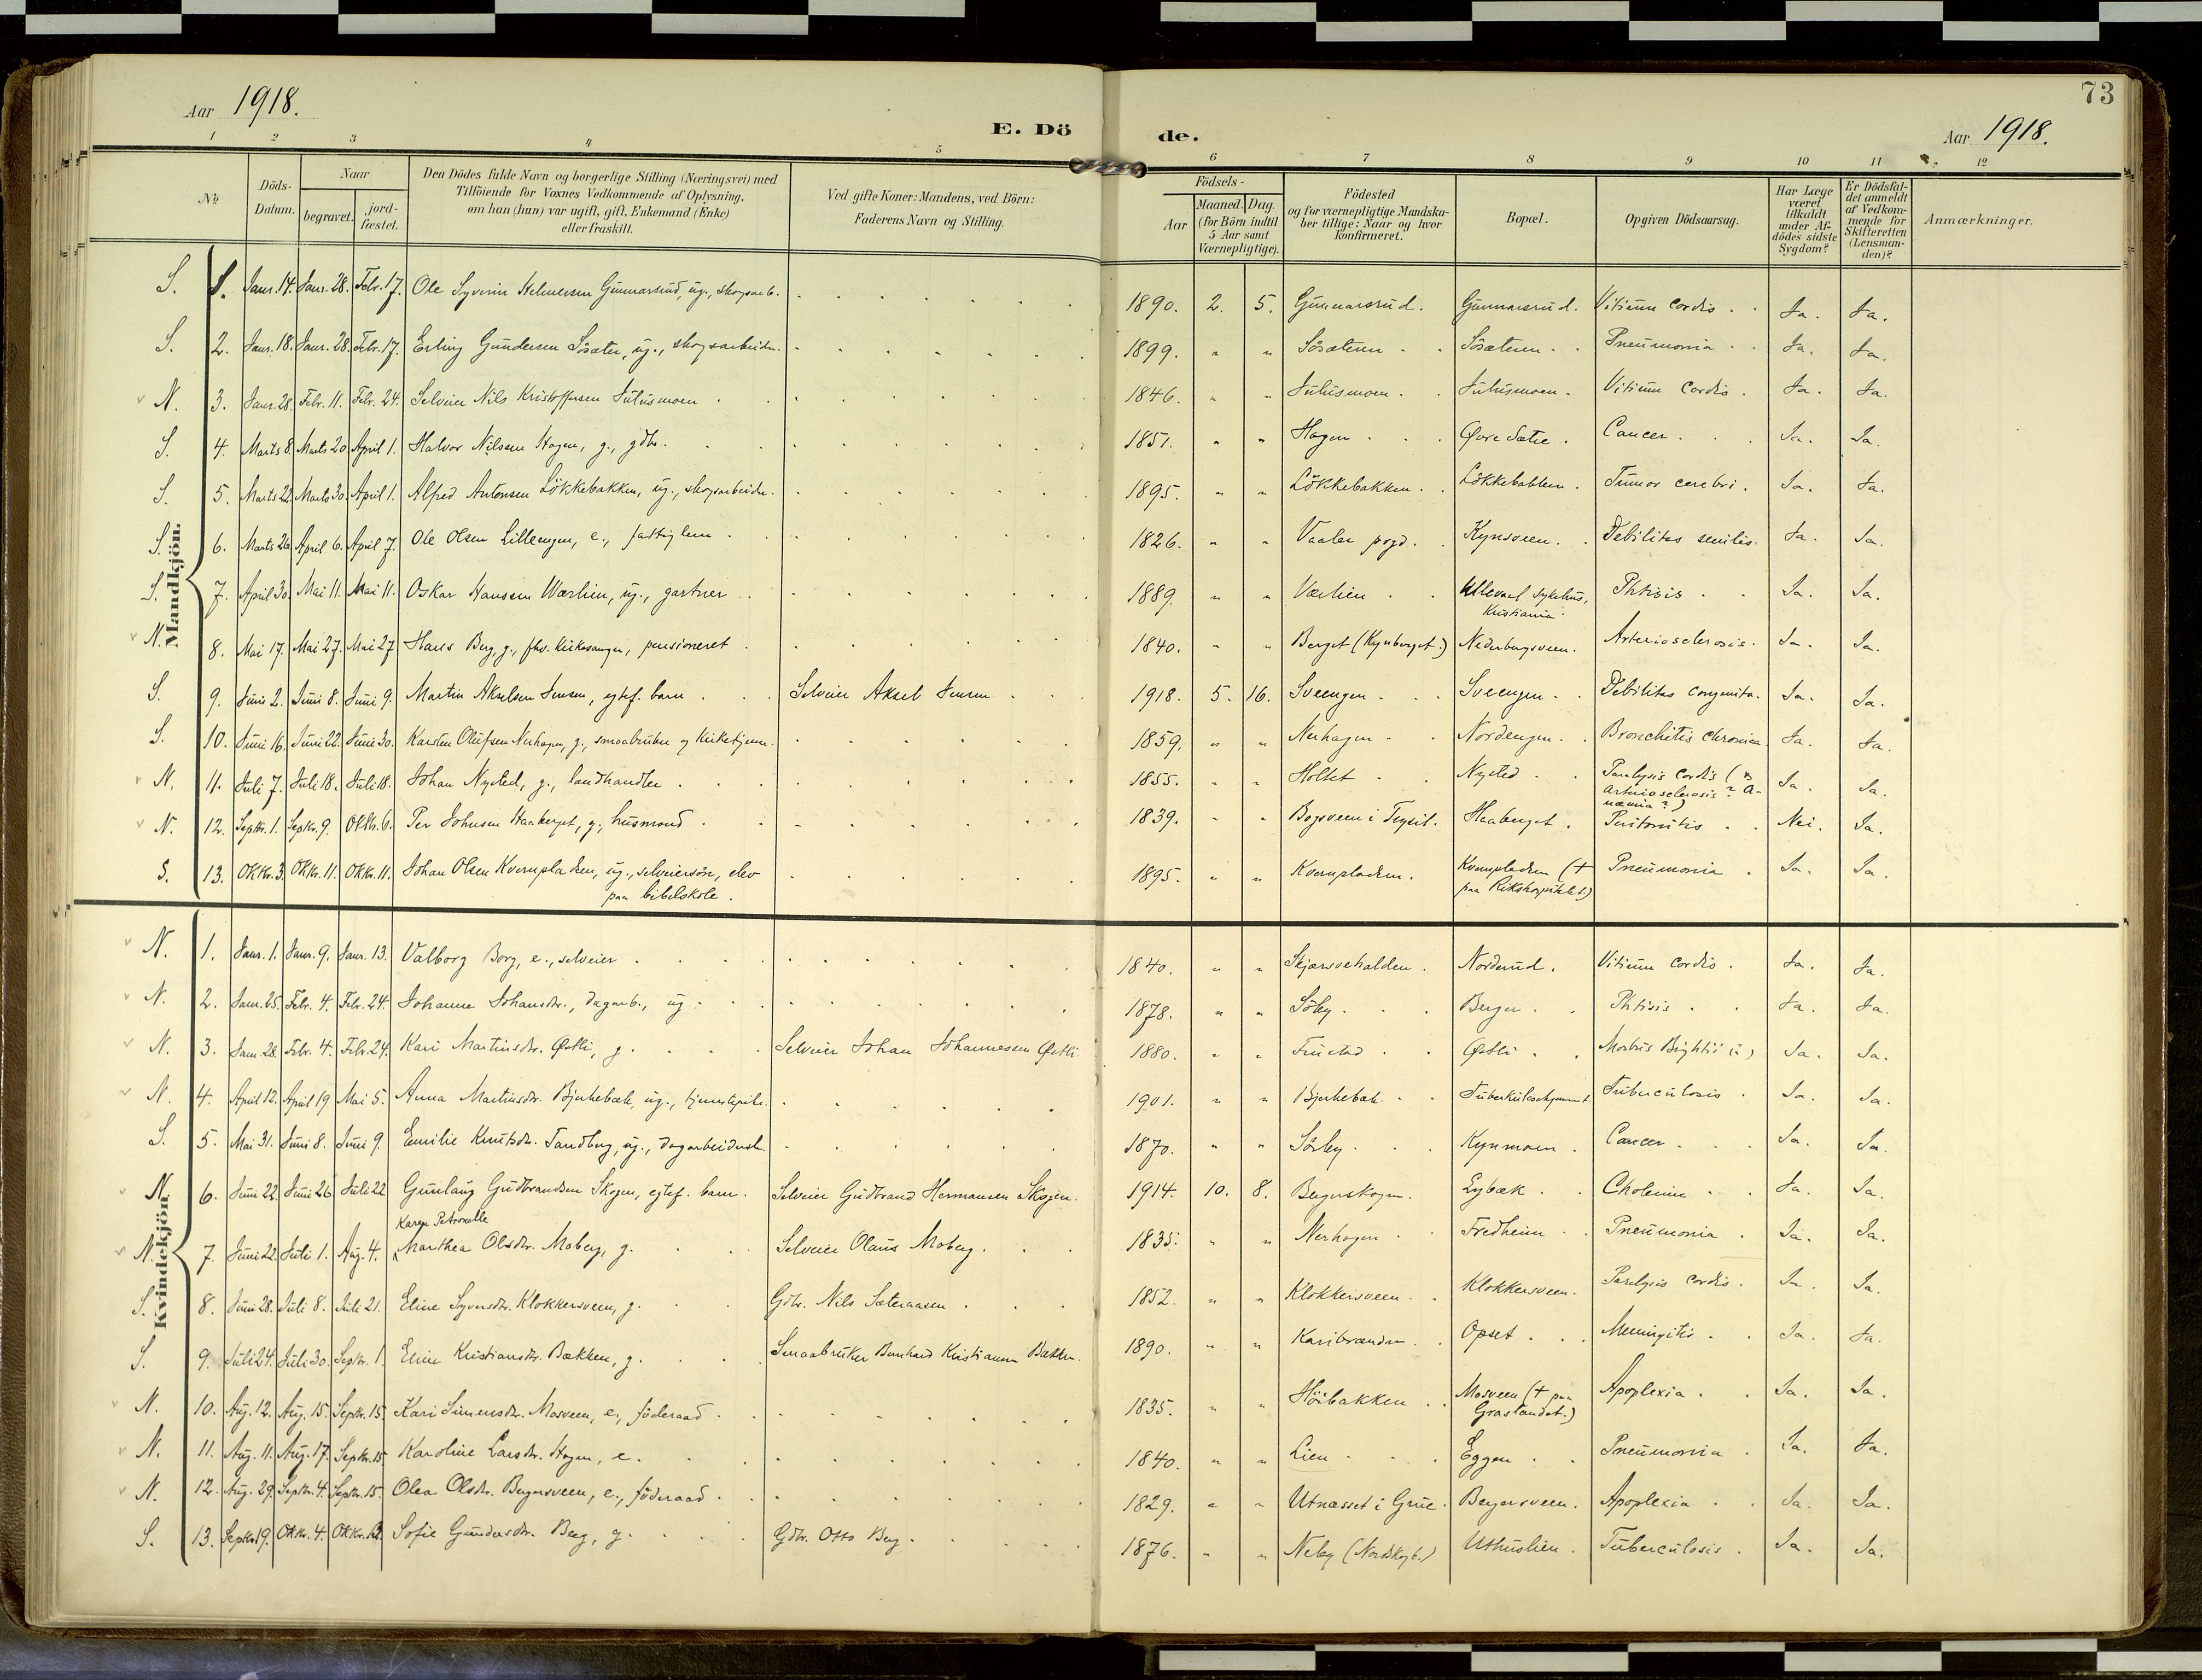 73
Aar 1918.
E. Dö de.
Aar 1918.
1 2 3 4 5 6 7 8 9 10 11 12
No
Döds-Datum.
Naar
begravet.
jord-fæstet.
Den Dödes fulde Navn og borgerlige Stilling (Næringsvei) med
Tilföiende for Voxnes Vedkommende af Oplysning,
om han (hun) var ugift, gift, Enkemand (Enke)
eller fraskilt.
Ved gifte Koner: Mandens, ved Börn:
Faderens Navn og Stilling.
Födsels-
Aar
Maaned. Dag.
(for Börn indtil
5 Aar samt
Værnepligtige).
Födested
og for værnepligtige Mandska-
ber tillige: Naar og hvor
konfirmeret.
Bopæl.
Opgiven Dödsaarsag.
Har Læge
været
tilkaldt
under Af-
dödes sidste
Sygdom?
Er Dödsfal-
det anmeldt
af Vedkom-
mende for
Skifteretten
(Lensman-
den)?
Anmærkninger.
Mandkjön.
S. 1. Janr. 14. Janr. 28. Febr. 17. Ole Syverin Gunnarsrud, ug., skogsarb. 1890. 2. 5. Gunnarsrud. Gunnarsrud. Vitium cordis. Ja. Ja.
S. 2. Janr. 18. Janr. 28. Febr. 17. Erling Gundersen Sösæter, ug., skogsarbeider. 1899. " " Sösæteren. Sösæteren. Pneumonia. Ja. Ja.
N. 3. Janr. 28. Febr. 11. Febr. 24. Selveier Nils Kristoffersen Julusmoen. 1846. " " Julusmoen. Julusmoen. Vitium cordis. Ja. Ja.
S. 4. Marts 8. Marts 20. April 1. Halvor Nilssen Hagen, g., gdbr. 1851. " " Hagen. Øvre Sætre. Cancer. Ja. Ja.
S. 5. Marts 22. Marts 30. April 1. Alfred Antonsen Lökkebakken, ug., skogsarbeider. 1895. " " Lökkebakken. Lökkebakken. Tumor cerebri. Ja. Ja.
S. 6. Marts 26. April 6. April 7. Ole Olsen Lillengen, e., fattiglem. 1826. " " Vaaler prgd. Kynsveen. Debilitas senilis. Ja. Ja.
S. 7. April 30. Mai 11. Mai 11. Oskar Hanssen Værlien, ug., gartner. 1889. " " Værlien. Ullevaal sykehus, Kristiania. Phtisis. Ja. Ja.
N. 8. Mai 17. Mai 27. Mai 27. Hans Berg, g., fhv. kirkesanger, pensioneret. 1840. " " Berget (Kynberget.) Nederbergsveen. Arteriosclerosis. Ja. Ja.
S. 9. Juni 2. Juni 8. Juni 9. Martin Akselsen Jensen, egtef. barn. Selveier Aksel Jensen. 1918. 5. 16. Sveengen. Sveengen. Debilitas congenita. Ja. Ja.
S. 10. Juni 16. Juni 22. Juni 30. Karsten Olufsen Nerhagen, g., smaabruker og kirketjener. 1859. " " Nerhagen. Nordengen. Bronchitis chronica. Ja. Ja.
N. 11. Juli 7. Juli 18. Juli 18. Johan Nysted, g., landhandler. 1855. " " Holtet. Nysted. Paralysis cordis ( Arteriosclerosis? Anæmia?) Ja. Ja.
N. 12. Septbr. 1. Septbr. 9. Oktbr. 6. Per Johnsen Haaberget, g., husmand. 1839. " " Bogsveen i Trysil. Haaberget. Peritonitis. Nei. Ja.
S. 13. Oktbr. 3. Oktbr. 11. Oktbr. 11. Johan Olsen Kvernpladsen, ug., selveiersön, elev
paa bibelskole. 1895. " " Kvernpladsen. Kvernpladsen († paa Rikshospitalet.) Pneumonia. Ja. Ja.
Kvindekjön.
N. 1. Janr. 1. Janr. 9. Janr. 13. Valborg Borg, e., selveier. 1840. " " Skjærsvehalden. Norderud. Vitium cordis. Ja. Ja.
N. 2. Janr. 25. Febr. 4. Febr. 24. Johanne Johansdr., dagarb., ug. 1878. " " Söby. Berger. Phtisis. Ja. Ja.
N. 3. Janr. 28. Febr. 4. Febr. 24. Kari Martinsdr. Østli, g. Selveier Johan Johannessen Østli. 1880. " " Østli. Morbus Brightii Ja. Ja.
N. 4. April 12. April 19. Mai 5. Anna Martinsdr. Bjerkebæk, ug., tjenestepike. 1901. " " Bjerkebæk. Tuberkulosehjemmet. Tuberculosis. Ja. Ja.
S. 5. Mai 31. Juni 8. Juni 9. Emilie Knutsdr. Tandberg, ug., dagarbeiderske. 1870. " " Sörby. Kynmoen. Cancer. Ja. Ja.
N. 6. Juni 22. Juni 26. Juli 22. Gunlaug Gudbrandsen Skogen, egtef. barn. Selveier Gudbrand Hermansen Skogen. 1914. 10. 8. Bergerskogen. Lybæk. Ja. Ja.
Karen Petronelle
N. 7. Juni 22. Juli 1. Aug. 4. Marthea Olsdr. Moberg, g. Selveier Olaus Moberg. 1835. " " Nerhagen. Fredheim. Pneumonia. Ja. Ja.
S. 8. Juni 28. Juli 8. Juli 21. Eline Syversdr. Klokkersveen, g. Gdbr. Nils Sæteraasen. 1852. " " Klokkersveen. Klokkersveen. Paralysis cordis. Ja. Ja.
S. 9. Juli 24. Juli 30. Septbr. 1. Eline Kristiansdr. Bakken, g. Smaabruker Bernhard Kristiansen Bakken. 1890. " " Karibrænden. Opset. Meningitis. Ja. Ja.
N. 10. Aug. 12. Aug. 15. Septbr. 15. Kari Simensdr. Mosveen, e., föderaad. 1835. " " Höibakken. Mosveen († paa Graslandet.) Apoplexia. Ja. Ja.
N. 11. Aug. 11. Aug. 17. Septbr. 15. Karoline Larsdr. Hagen, e. 1840. " " Lien. Eggen. Pneumonia. Ja. Ja.
N. 12. Aug. 29. Septbr. 4. Septbr. 15. Olea Olsdr. Bergersveen, e., föderaad. 1829. " " Utnæsset i Grue. Bergersveen. Apoplexia. Ja. Ja.
S. 13. Septbr. 19. Oktbr. 4. Oktbr. 13. Sofie Gundersdr. Berg, g. Gdbr. Otto Berg. 1876. " " Neby (Nordskogb.) Uthuslien. Tuberculosis. Ja. Ja.